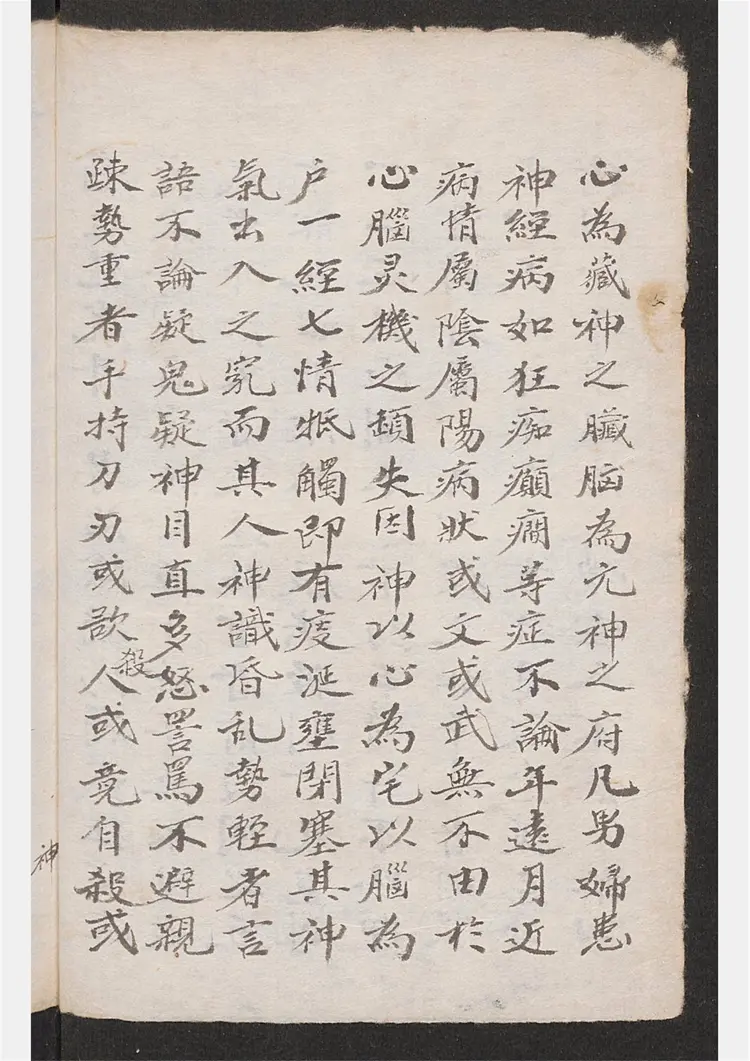 心為藏神之臟脳為元神之府凡男婦患
神經病如狂痴癲癇等症不論年遠月近
病情屬陰屬陽病狀或文或武無不由於
心腦灵機之頓失因神以心為宅以腦為
户一經七情牴觸即有痰涎壅閉塞其神
氣出入之竅而其人神識昏乱勢輕者言
語不論疑鬼疑神目直多怒詈罵不避親
疎勢重者手持刀刃或欲殺人或竟自殺或
神